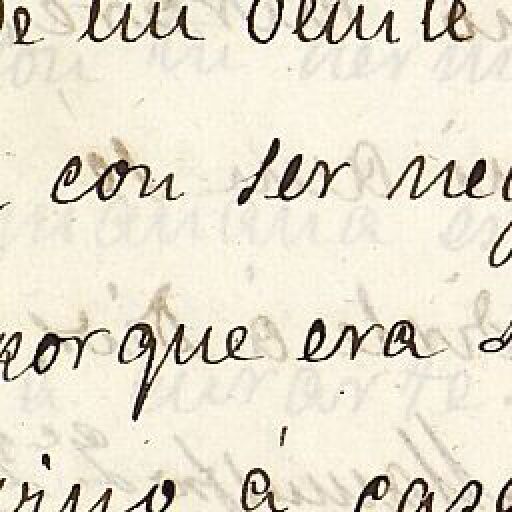 de un
con ser neg
porque era
vino á casa